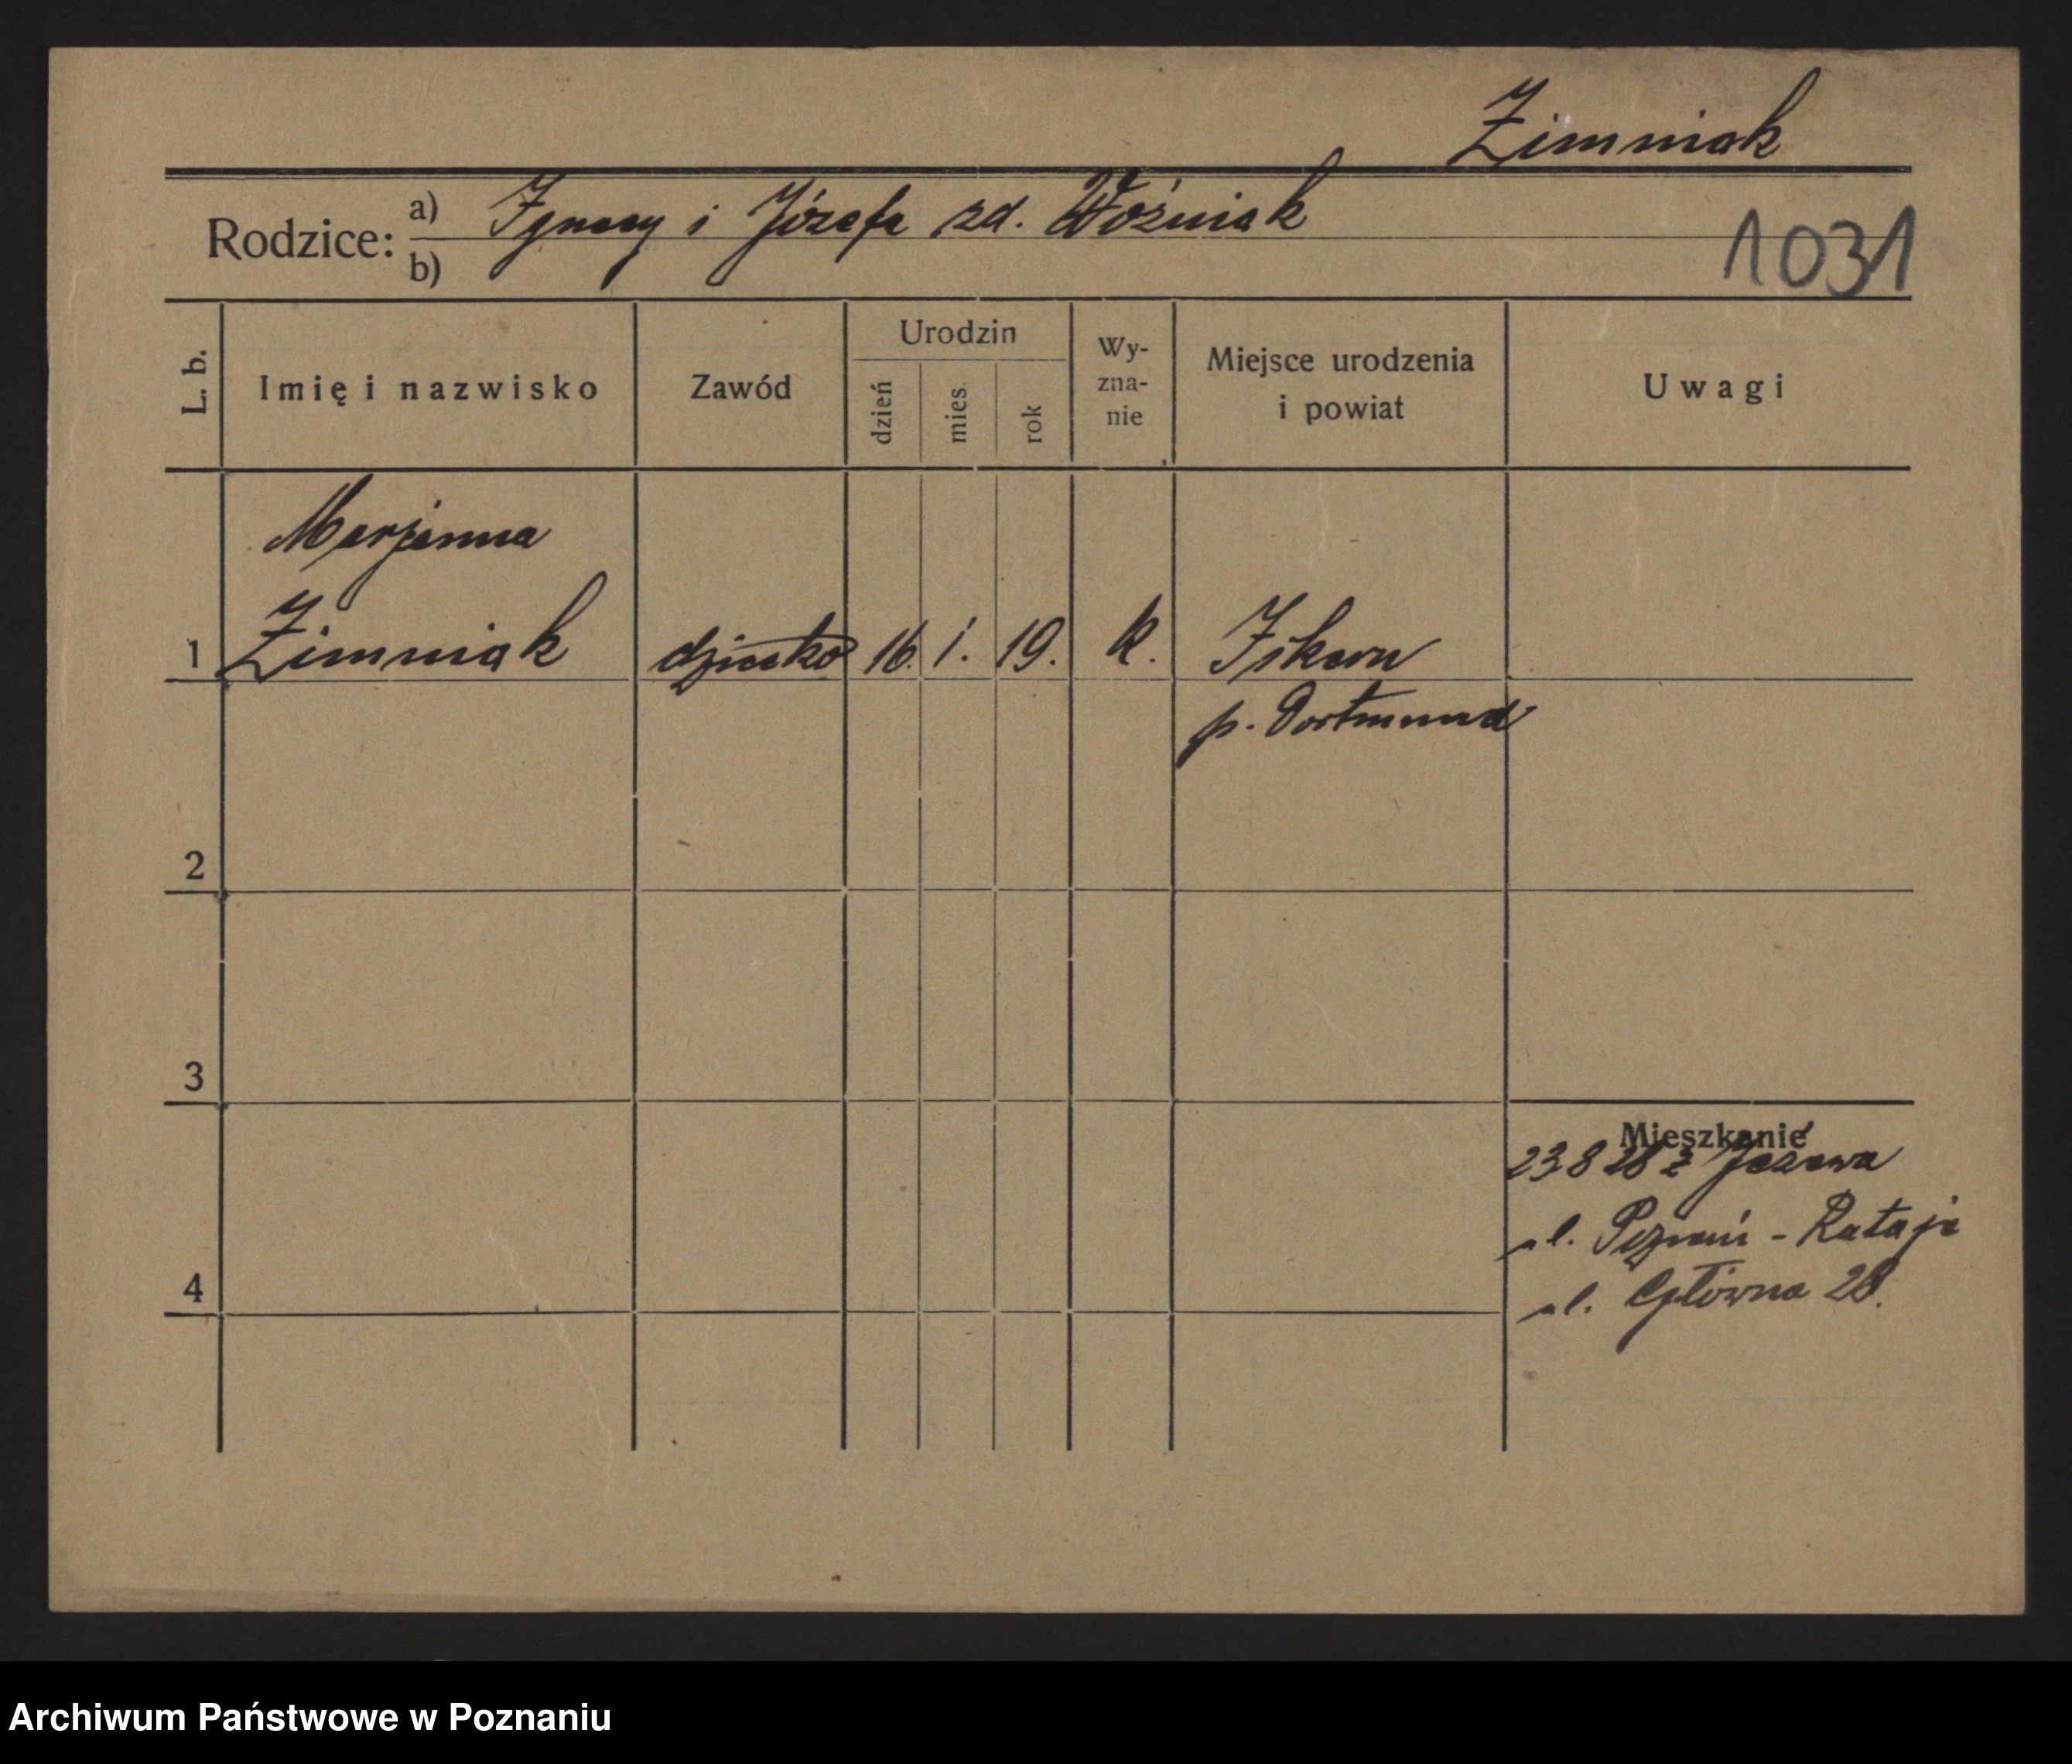 Zimniak
Rodzice: a) Ignacy i Józefa zd. Woźniak
b)
1031
L. b.
Imię i nazwisko
Zawód
Urodzin
dzień
mies.
rok
Wy-
zna-
nie
Miejsce urodzenia
i powiat
Uwagi
Marjanna
1 Zimniak dziecko 16. 1. 19. k. Ikern
p. Dortmund
2
3
Mieszkanie
23 8 28 z
4
ul. Poznań - Rataje
ul. Główna 28.
Archiwum Państwowe w Poznaniu